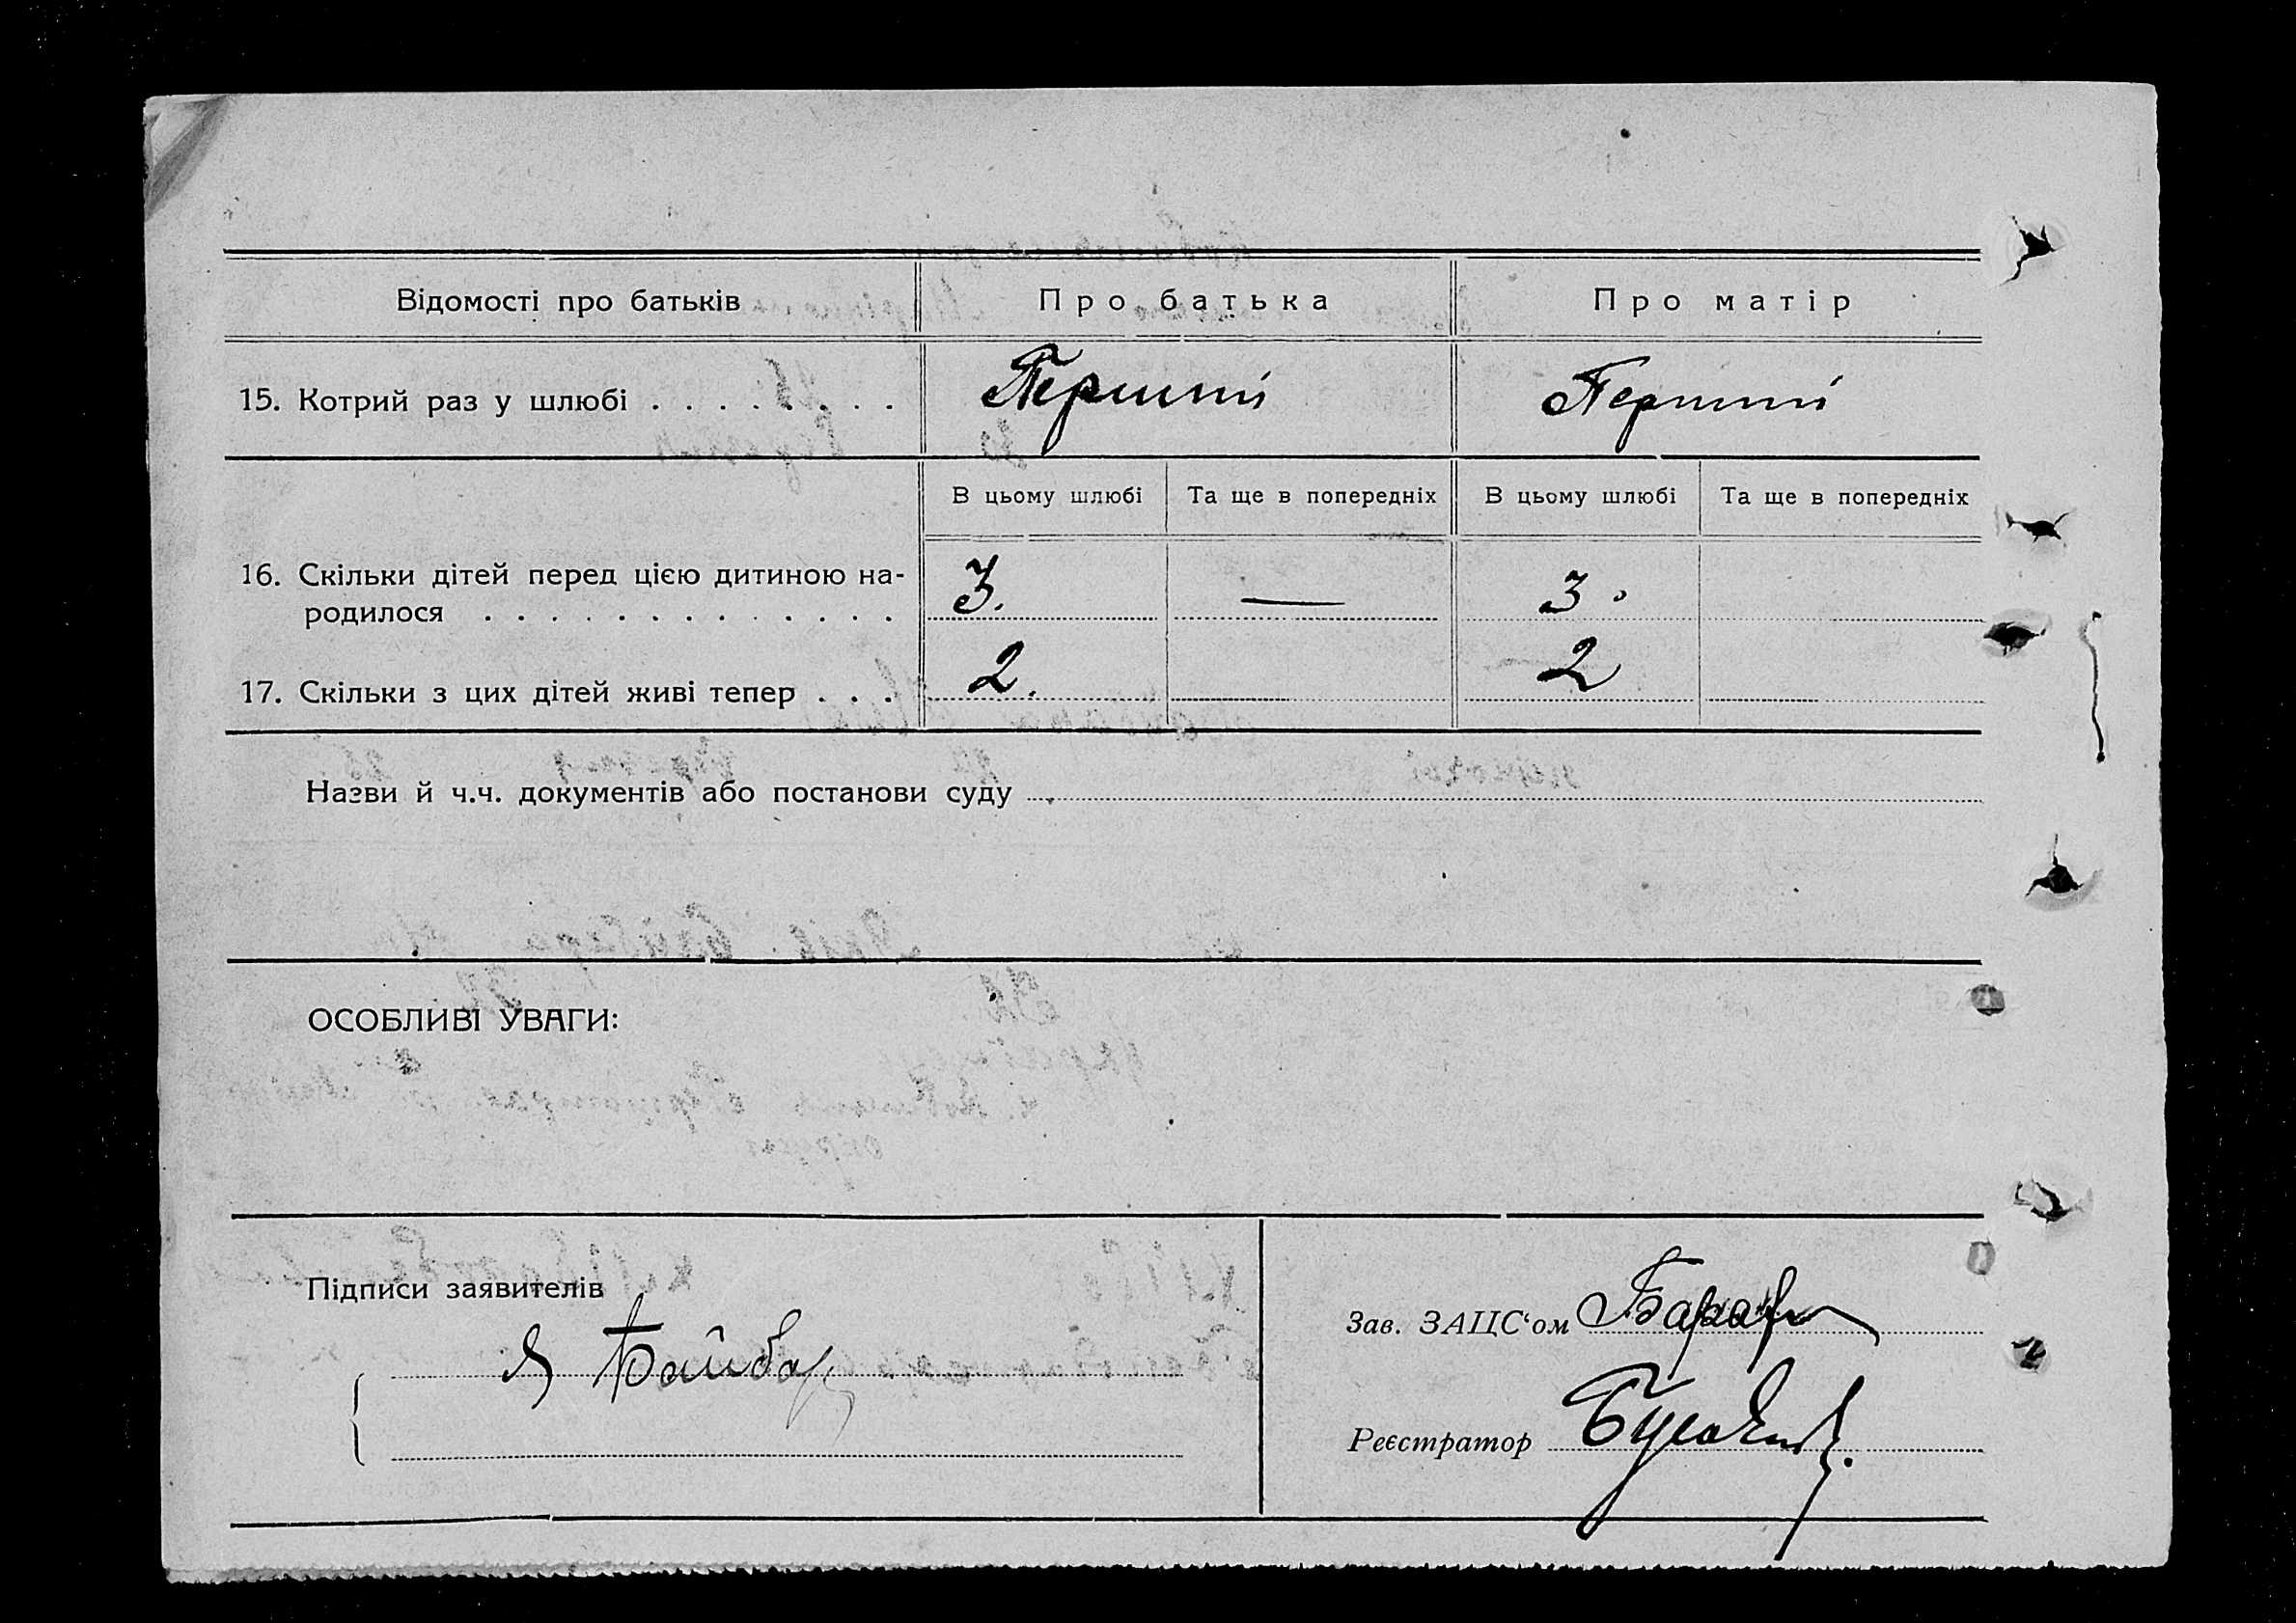 Відомості про батьків
Про батька
Про матір
15. Котрий раз у шлюбі . . . . . . . .
Перший
Перший
В цьому шлюбі
Та ще в попередніх
В цьому шлюбі
Та ще в попередніх
16. Скільки дітей перед цією дитиною на-
родилося . . . . . . . . . . . . .
3.
—
3.
17. Скільки з цих дітей живі тепер . . .
2.
2
Назви й ч.ч. документів або постанови суду
ОСОБЛИВІ УВАГИ:
Підписи заявителів
Я Байбар
Зав. ЗАЦС‘ом
Реєстратор